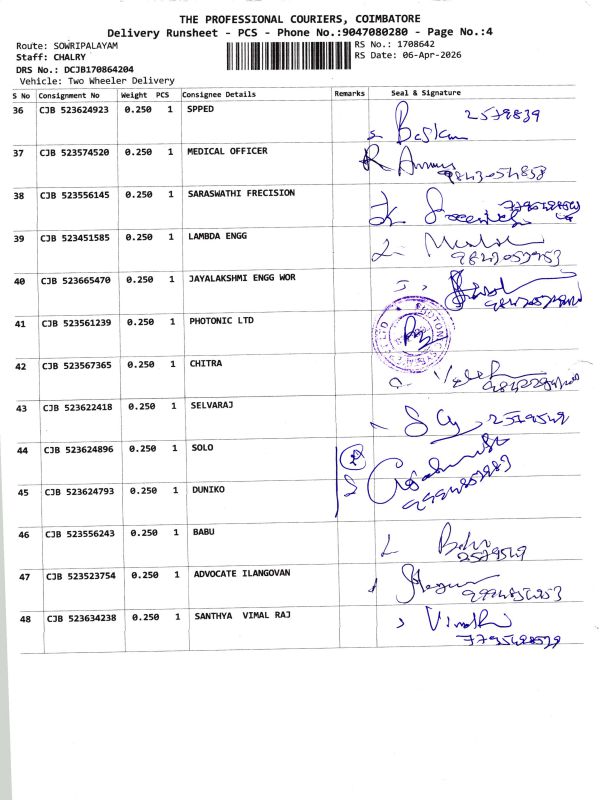 THE PROFESSIONAL COURIERS, COIMBATORE
Delivery Runsheet - PCS - Phone No.:9047080280 - Page No.:4
Route: SOWRIPALAYAM RS No.: 1708642
Staff: CHALRY RS Date: 06-Apr-2026
DRS No.: DCJB170864204
Vehicle: Two Wheeler Delivery
S No Consignment No Weight PCS Consignee Details Remarks Seal & Signature
36 CJB 523624923 0.250 1 SPPED 2579839
Baskar
37 CJB 523574520 0.250 1 MEDICAL OFFICER
38 CJB 523556145 0.250 1 SARASWATHI FRECISION
39 CJB 523451585 0.250 1 LAMBDA ENGG
40 CJB 523665470 0.250 1 JAYALAKSHMI ENGG WOR
41 CJB 523561239 0.250 1 PHOTONIC LTD
42 CJB 523567365 0.250 1 CHITRA
43 CJB 523622418 0.250 1 SELVARAJ
44 CJB 523624896 0.250 1 SOLO
45 CJB 523624793 0.250 1 DUNIKO
46 CJB 523556243 0.250 1 BABU
47 CJB 523523754 0.250 1 ADVOCATE ILANGOVAN
48 CJB 523634238 0.250 1 SANTHYA VIMAL RAJ